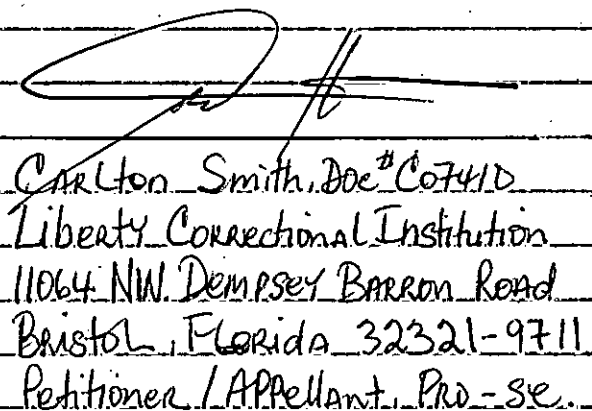 Carlton Smith, Doc# C07410
Liberty Correctional Institution
11064 NW. Dempsey Barron Road
Bristol, Florida 32321-9711
Petitioner / Appellant, Pro-se.